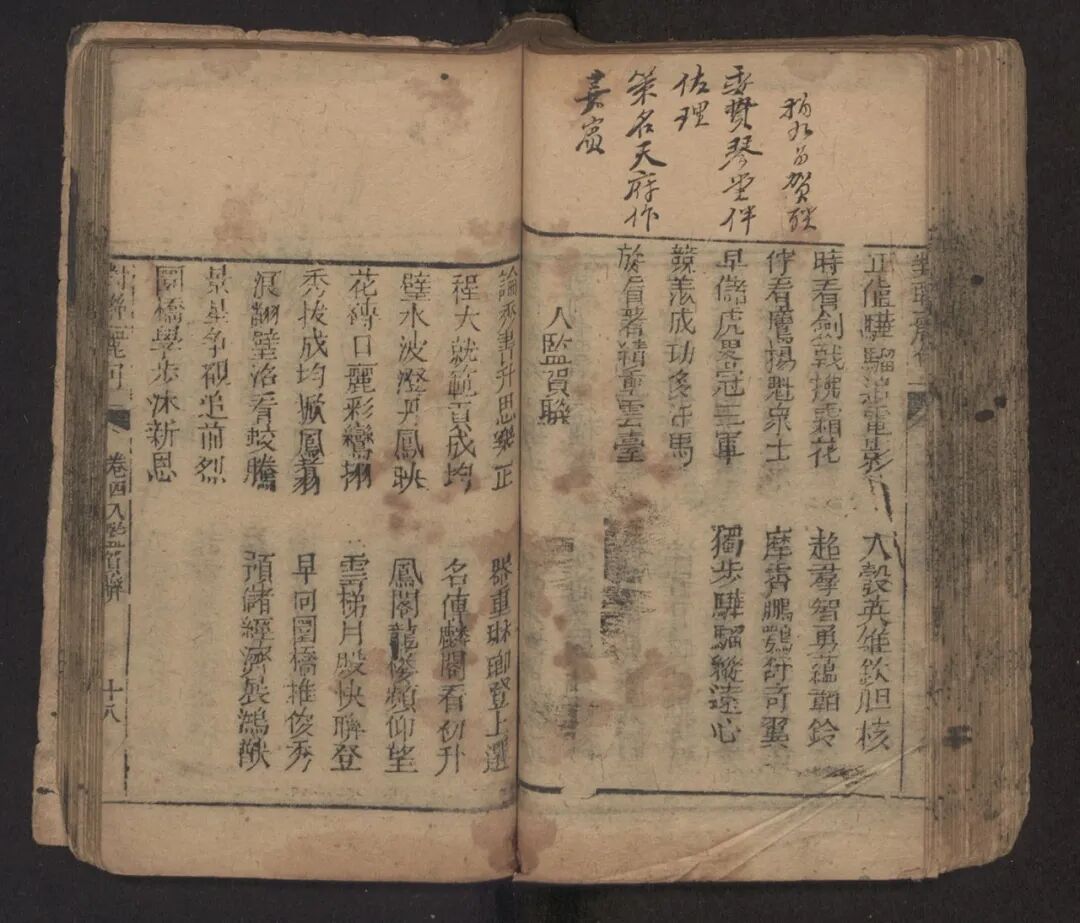 賀聯
委贄琴堂伴
佐理
策名天府作
嘉賓
正催驊騮追電影 入彀英雄欽胆核
時看劍戟拂霜花 超羣智勇蘊韜鈴
佇看鷹揚魁衆士 摩霄鵬鶚舒奇翼
早儲虎畧冠三軍 獨步驊騮縱遠心
競羨成功多汗馬
旋看著績重雲臺
入監賀聯
論秀書升思樂正 器重琳瑯登上選
程大就範貢成均 名傳麟閣看初升
璧水波澄丹鳳映 鳳閣龍樓頻仰望
花磚日麗彩鸞翔 雲梯月殿快聯登
秀拔成均掀鳳翥 早向圜橋推俊秀
浪翻璧沼看蛟騰 預儲經濟展鴻猷
景星争覩追前烈
圜橋學步沐新恩
卷四入監賀聯 十八